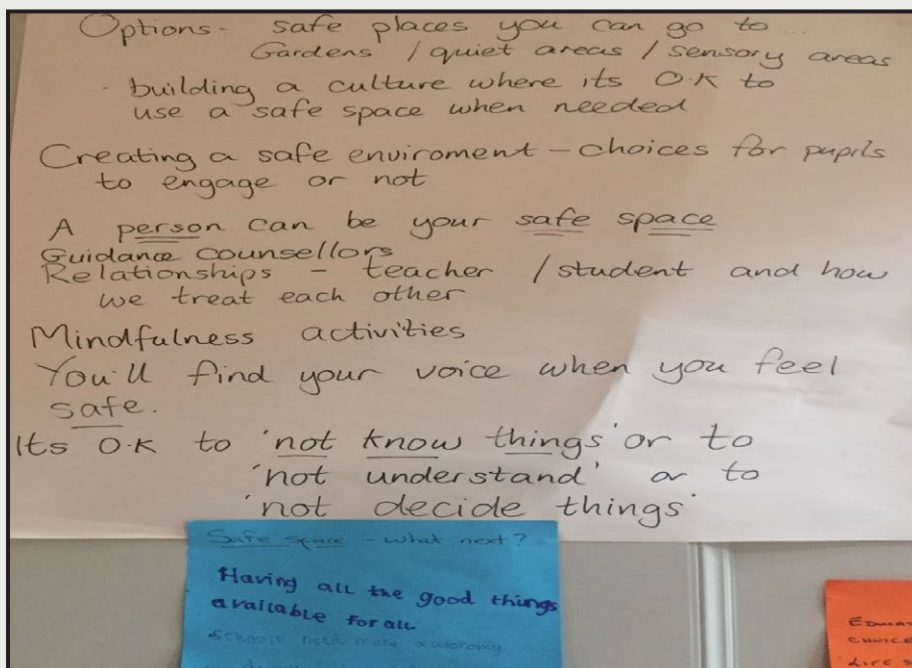 Options - safe places you can go to...
Gardens / quiet areas / sensory areas
- building a culture where its O.K to
use a safe space when needed
Creating a safe enviroment - choices for pupils
to engage or not
A person can be your safe space
Guidance counsellors
Relationships - teacher / student and how
we treat each other
Mindfulness activities
You'll find your voice when you feel
safe.
Its O.K to 'not know things' or to
'not understand' or to
'not decide things'
Safe space - what next?
Having all the good things
available for all
Schools need more autonomy
CHOICE
LIFE